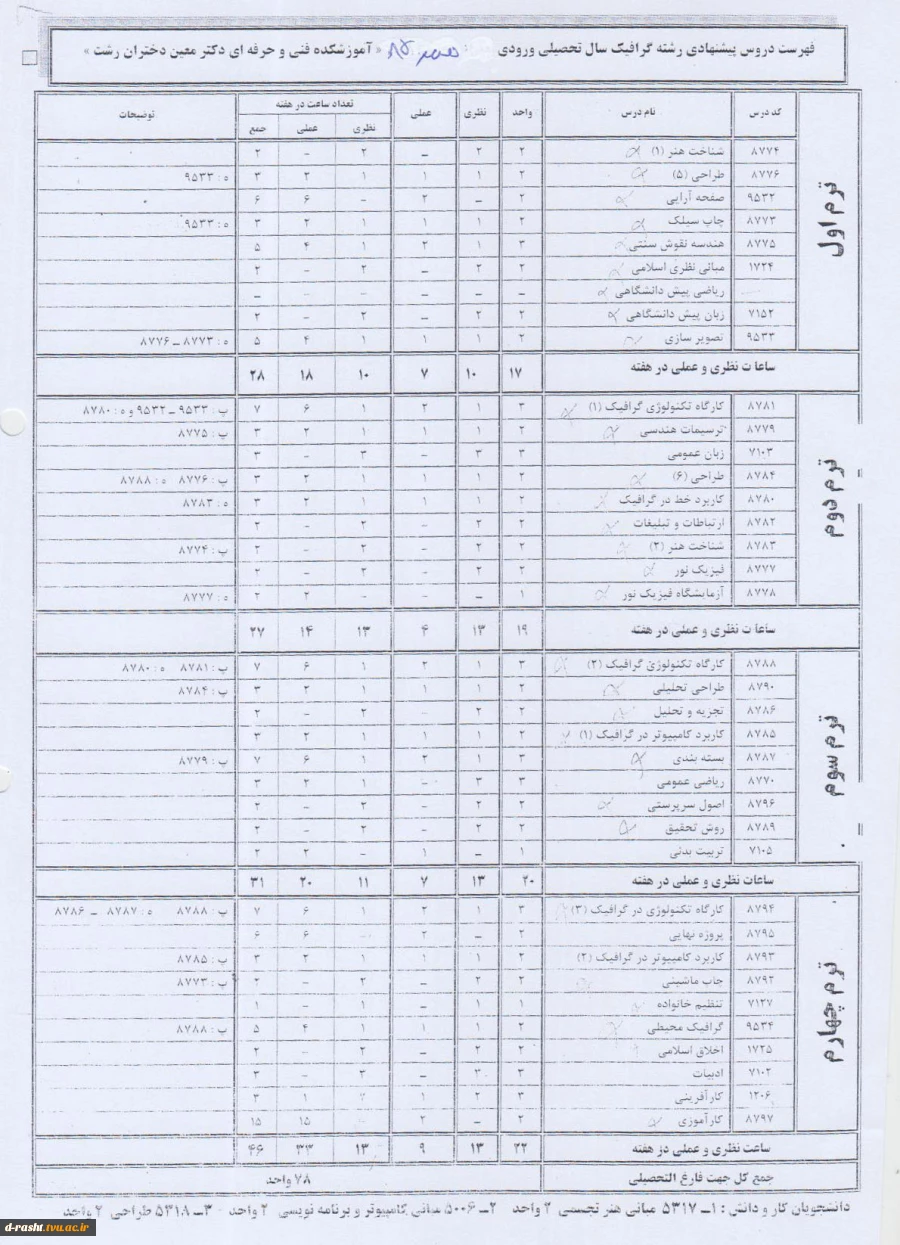 فهرست دروس پیشنهادی رشته گرافیک سال تحصیلی ورودی « آموزشکده فنی و حرفه ای دکتر معین دختران رشت »
کد درس نام درس واحد نظری عملی تعداد ساعت در هفته توضیحات
نظری عملی جمع
ترم اول
۸۷۷۴ شناخت هنر (۱) ۲ ۲ – ۲ – ۲
۸۷۷۶ طراحی (۵) ۲ ۱ ۱ ۱ ۲ ۳ ه : ۹۵۳۳
۹۵۳۲ صفحه آرایی ۲ – ۲ – ۶ ۶
۸۷۷۳ چاپ سیلک ۲ ۱ ۱ ۱ ۲ ۳ ه : ۹۵۳۳
۸۷۷۵ هندسه نقوش سنتی ۳ ۱ ۲ ۱ ۴ ۵
۱۷۲۴ مبانی نظری اسلامی ۲ ۲ – ۲ – ۲
ریاضی پیش دانشگاهی – – – – – –
۷۱۵۲ زبان پیش دانشگاهی ۲ ۲ – ۲ – ۲
۹۵۳۳ تصویر سازی ۲ ۱ ۱ ۱ ۴ ۵ ه : ۸۷۷۳ – ۸۷۷۶
ساعات نظری و عملی در هفته ۱۷ ۱۰ ۷ ۱۰ ۱۸ ۲۸
ترم دوم
۸۷۸۱ کارگاه تکنولوژی گرافیک (۱) ۳ ۱ ۲ ۱ ۶ ۷ پ : ۹۵۳۳ – ۹۵۳۲ و ه : ۸۷۸۰
۸۷۷۹ ترسیمات هندسی ۲ ۱ ۱ ۱ ۲ ۳ پ : ۸۷۷۵
۷۱۰۳ زبان عمومی ۳ ۳ – ۳ – ۳
۸۷۸۴ طراحی (۶) ۲ ۱ ۱ ۱ ۲ ۳ پ : ۸۷۷۶ ه : ۸۷۸۸
۸۷۸۰ کاربرد خط در گرافیک ۲ ۱ ۱ ۱ ۲ ۳ ه : ۸۷۸۳
۸۷۸۲ ارتباطات و تبلیغات ۲ ۲ – ۲ – ۲
۸۷۸۳ شناخت هنر (۲) ۲ ۲ – ۲ – ۲ پ : ۸۷۷۴
۸۷۷۷ فیزیک نور ۲ ۲ – ۲ – ۲
۸۷۷۸ آزمایشگاه فیزیک نور ۱ – – – ۲ ۲ ه : ۸۷۷۷
ساعات نظری و عملی در هفته ۱۹ ۱۳ ۴ ۱۳ ۱۴ ۲۷
ترم سوم
۸۷۸۸ کارگاه تکنولوژی گرافیک (۲) ۳ ۱ ۲ ۱ ۶ ۷ پ : ۸۷۸۱ ه : ۸۷۸۰
۸۷۹۰ طراحی تحلیلی ۲ ۱ ۱ ۱ ۲ ۳ پ : ۸۷۸۴
۸۷۸۶ تجزیه و تحلیل ۲ ۲ – ۲ – ۲
۸۷۸۵ کاربرد کامپیوتر در گرافیک (۱) ۲ ۱ ۱ ۱ ۲ ۳
۸۷۸۷ بسته بندی ۳ ۱ ۲ ۱ ۶ ۷ پ : ۸۷۷۹
۸۷۷۰ ریاضی عمومی ۳ ۳ – ۱ ۲ ۳
۸۷۹۶ اصول سرپرستی ۲ ۲ – ۲ – ۲
۸۷۸۹ روش تحقیق ۲ ۲ – ۲ – ۲
۷۱۰۵ تربیت بدنی ۱ – ۱ – ۲ ۲
ساعات نظری و عملی در هفته ۲۰ ۱۳ ۷ ۱۱ ۲۰ ۳۱
ترم چهارم
۸۷۹۴ کارگاه تکنولوژی در گرافیک (۳) ۳ ۱ ۲ ۱ ۶ ۷ پ : ۸۷۸۸ ه : ۸۷۸۷ – ۸۷۸۶
۸۷۹۵ پروژه نهایی ۲ – ۲ ۶ ۶
۸۷۹۳ کاربرد کامپیوتر در گرافیک (۲) ۲ ۱ ۱ ۱ ۲ ۳ پ : ۸۷۸۵
۸۷۹۲ چاپ ماشینی ۲ ۲ – ۲ – ۲ پ : ۸۷۷۳
۷۱۲۷ تنظیم خانواده ۱ ۱ – ۱ – ۱
۹۵۳۴ گرافیک محیطی ۲ ۱ ۱ ۱ ۴ ۵ پ : ۸۷۸۸
۱۷۲۵ اخلاق اسلامی ۲ ۲ – ۲ – ۲
۷۱۰۲ ادبیات ۳ ۳ – ۳ – ۳
۱۲۰۶ کارآفرینی ۳ ۲ ۱ ۲ ۱ ۳
۸۷۹۷ کارآموزی ۲ – ۲ ۱۵ ۱۵
ساعت نظری و عملی در هفته ۲۲ ۱۳ ۹ ۱۳ ۳۳ ۴۶
جمع کل جهت فارغ التحصیلی ۷۸ واحد
دانشجویان کار و دانش : ۱ – ۵۳۱۷ مبانی هنر تجسمی ۲ واحد ۲ – ۵۰۰۶ مبانی کامپیوتر و برنامه نویسی ۲ واحد ۳ – ۵۳۱۸ طراحی ۲ واحد
d-rasht.tvu.ac.ir